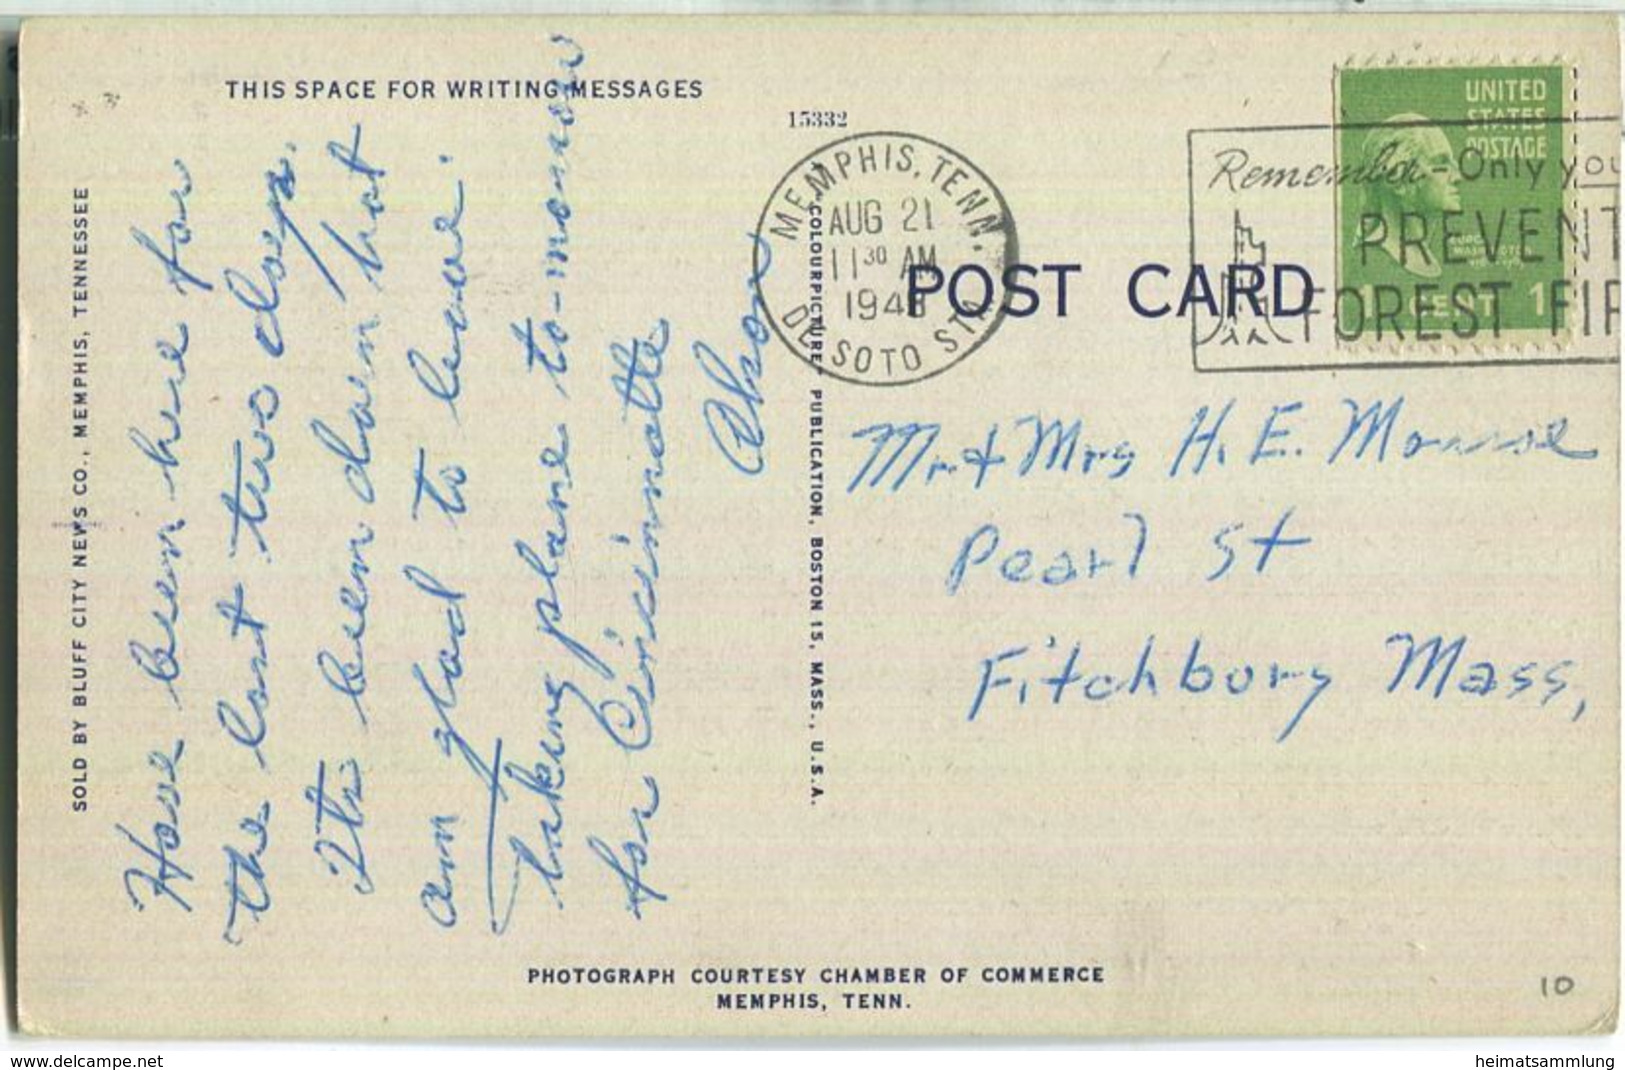 THIS SPACE FOR WRITING MESSAGES
15332
SOLD BY BLUFF CITY NEWS CO., MEMPHIS, TENNESSEE
Have been here for
the last two days.
Its been damn hot
am glad to leave.
taking plane to-morrow
for Cincinnatte
"COLOURPICTURE" PUBLICATION, BOSTON 15, MASS., U.S.A.
MEMPHIS, TENN.
AUG 21
11 30 AM
1948
DE SOTO STA
POST CARD
UNITED
STATES
POSTAGE
1 CENT 1
Remember - Only you
PREVENT
FOREST FIR
Mr. & Mrs H. E.
Pearl St
Fitchburg Mass,
PHOTOGRAPH COURTESY CHAMBER OF COMMERCE
MEMPHIS, TENN.
10
www.delcampe.net
heimatsammlung